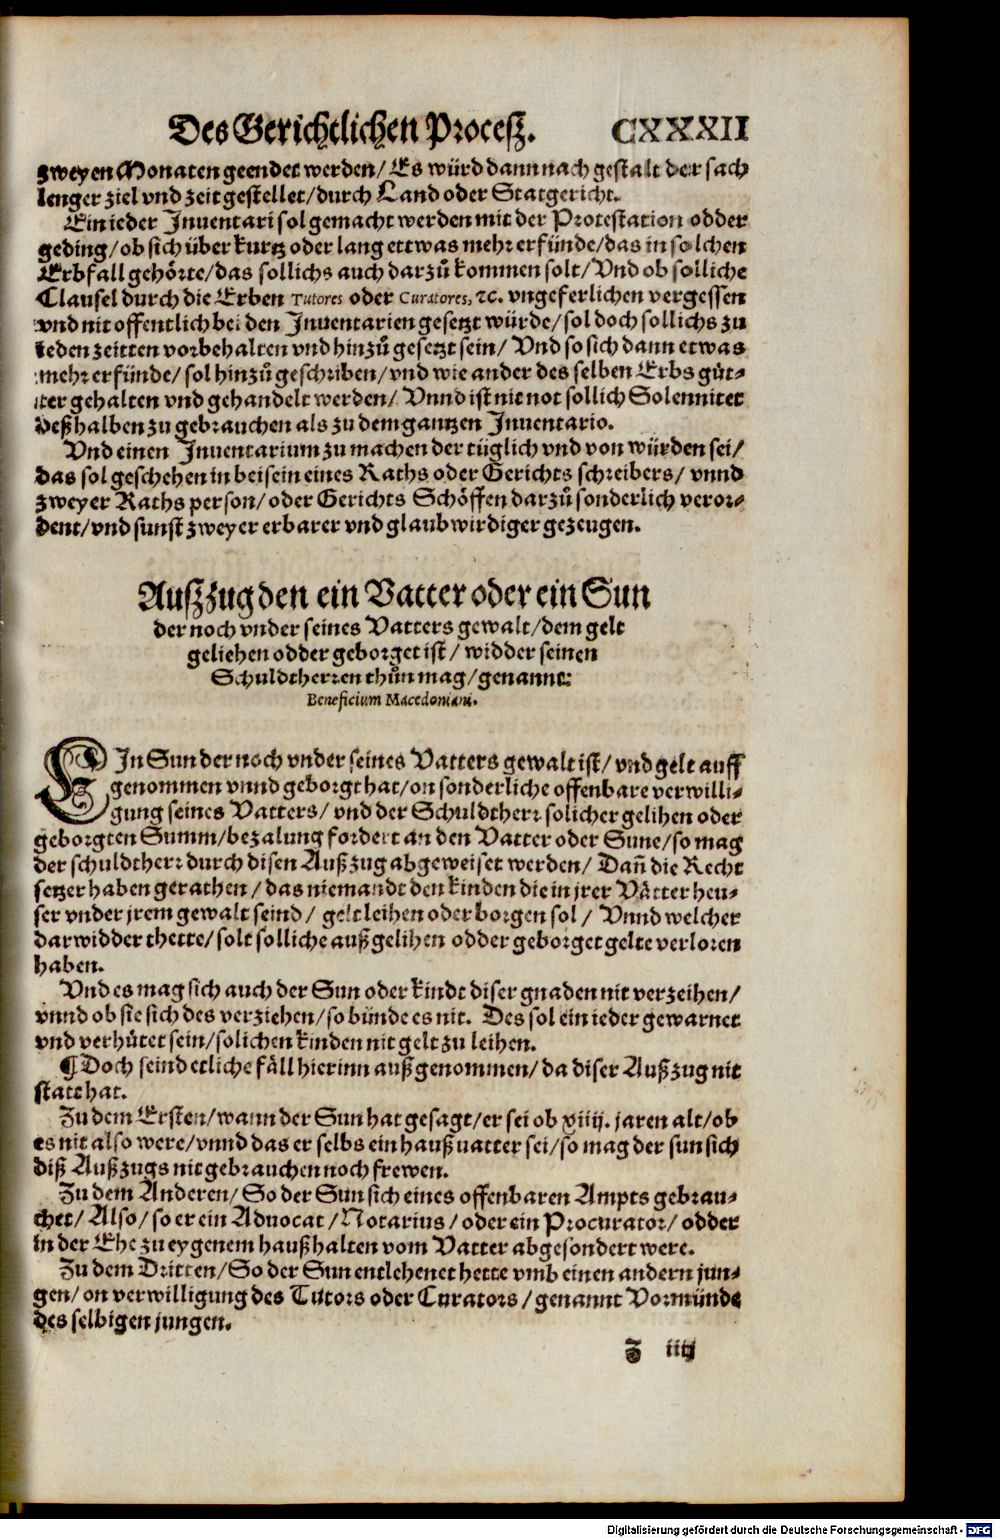 Des Gerichtlichen Proceſz. CXXXII
zweyen Monaten geendet werden/ Es würd dann nach geſtalt der ſach
lenger ziel vnd zeit geſtellet/durch Land oder Statgericht.
Ein ieder Inuentari ſol gemacht werden mit der Proteſtation odder
geding/ob ſich über kurtz oder lang ettwas mehr erfünde/das in ſolchen
Erbfall gehörte/das ſollichs auch darzů kommen ſolt/Vnd ob ſolliche
Clauſel durch die Erben Tutores oder Curatores, ⁊c. vngeferlichen vergeſſen
vnd nit offentlich bei den Inuentarien geſetzt würde/ſol doch ſollichs zu
ieden zeitten vorbehalten vnd hinzů geſetzt ſein/ Vnd ſo ſich dann etwas
mehr erfünde/ ſol hinzů geſchriben/vnd wie ander des ſelben Erbs güt⸗
ter gehalten vnd gehandelt werden/ Vnnd iſt nit not ſollich Solennitet
deßhalben zu gebrauchen als zu dem gantzen Inuentario.
Vnd einen Inuentarium zu machen der tüglich vnd von würden ſei/
das ſol geſchehen in beiſein eines Raths oder Gerichts ſchreibers/ vnnd
zweyer Raths perſon/oder Gerichts Schöffen darzů ſonderlich veror⸗
dent/vnd ſunſt zweyer erbarer vnd glaubwirdiger gezeugen.
Auſzzug den ein Vatter oder ein Sun
der noch vnder ſeines Vatters gewalt/dem gelt
geliehen odder geborget iſt/ widder ſeinen
Schuldtherꝛen thůn mag/genannt:
Beneficium Macedoniani.
EIn Sun der noch vnder ſeines Vatters gewalt iſt/ vnd gelt auff
genommen vnnd geborgt hat/on ſonderliche offenbare verwilli⸗
gung ſeines Vatters/ vnd der Schuldtherꝛ ſolicher gelihen oder
geborgten Summ/bezalung fordert an den Vatter oder Sune/ſo mag
der ſchuldtherꝛ durch diſen Außzug abgeweiſet werden/ Dañ die Recht
ſetzer haben gerathen/das niemandt den kinden die in jrer Vätter heu⸗
ſer vnder jrem gewalt ſeind/ gelt leihen oder borgen ſol/ Vnnd welcher
darwidder thette/ſolt ſolliche auß gelihen odder geborget gelte verloren
haben.
Vnd es mag ſich auch der Sun oder kindt diſer gnaden nit verzeihen/
vnnd ob ſie ſich des verziehen/ſo bünde es nit. Des ſol ein ieder gewarnet
vnd verhütet ſein/ſolichen kinden nit gelt zu leihen.
¶ Doch ſeind etliche fäll hierinn außgenommen/da diſer Außzug nit
ſtatt hat.
Zu dem Erſten/wann der Sun hat geſagt/er ſei ob xiiij. jaren alt/ob
es nit alſo were/vnnd das er ſelbs ein haußuatter ſei/ſo mag der ſun ſich
diß Außzugs nit gebrauchen noch frewen.
Zu dem Anderen/So der Sun ſich eines offenbaren Ampts gebrau⸗
chet/Alſo/ſo er ein Aduocat/Notarius/oder ein Procurator/odder
in der Ehe zu eygenem haußhalten vom Vatter abgeſondert were.
Zu dem Dritten/So der Sun entlehenet hette vmb einen andern jun⸗
gen/on verwilligung des Tutors oder Curators/genannt Vormünde
des ſelbigen jungen.
Z iiij
Digitalisierung gefördert durch die Deutsche Forschungsgemeinschaft - DFG